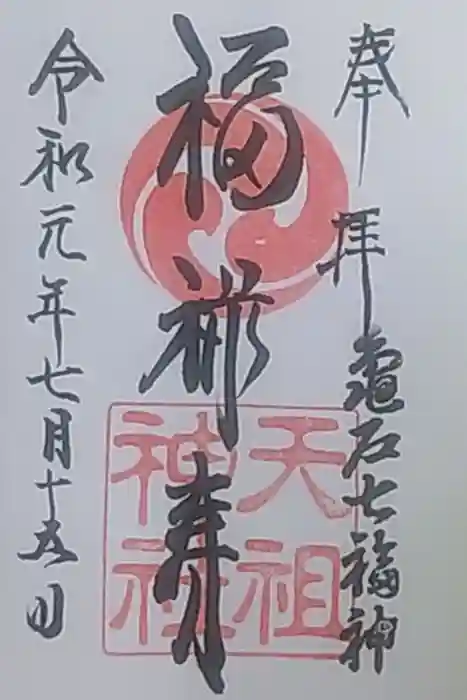 奉拝 亀戸七福神
福禄寿
令和元年七月十五日
天祖
神社